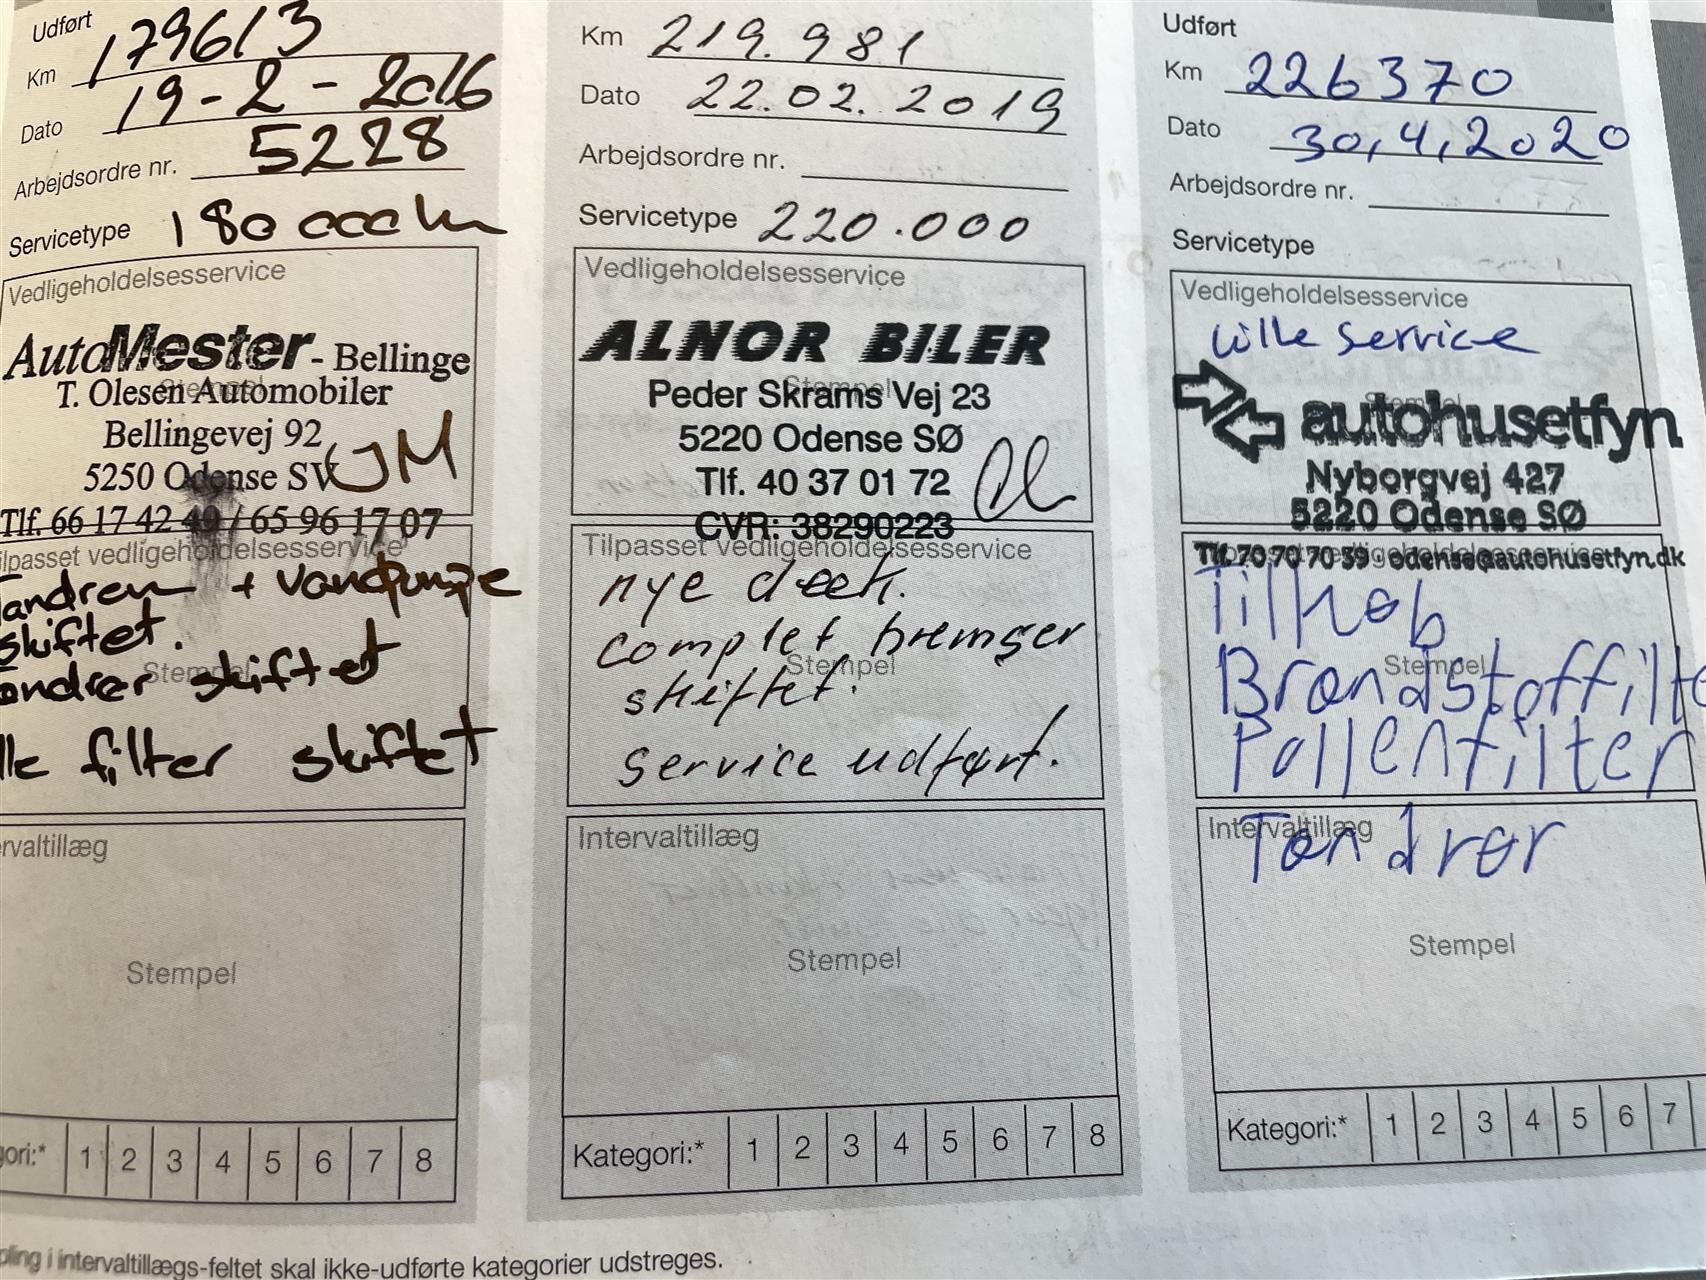 Udført
Km 179613
Dato 19-2-2016
Arbejdsordre nr. 5228
Servicetype 180 000 km
Vedligeholdelsesservice
AutoMester - Bellinge
T. Olesen Automobiler
Stempel
Bellingevej 92
5250 Odense SV
JM
Tlf. 66 17 42 49 / 65 96 17 07
ilpasset vedligeholdelsesservice
andrem + vandpumpe
skiftet.
Stempel
ændrør skiftet
lle filter skiftet
rvaltillæg
Stempel
gori:* 1 2 3 4 5 6 7 8
Km 219.981
Dato 22.02.2019
Arbejdsordre nr.
Servicetype 220.000
Vedligeholdelsesservice
ALNOR BILER
Stempel
Peder Skrams Vej 23
5220 Odense SØ
Tlf. 40 37 01 72
CVR: 38290223
Tilpasset vedligeholdelsesservice
nye dæk.
complet bremser
Stempel
skiftet.
service udført.
Intervaltillæg
Stempel
Kategori:* 1 2 3 4 5 6 7 8
Udført
Km 226370
Dato 30,4,2020
Arbejdsordre nr.
Servicetype
Vedligeholdelsesservice
Lille service
Stempel
autohusetfyn
Nyborgvej 427
5220 Odense SØ
Tlf. 70 70 70 59 odense@autohusetfyn.dk
Tilkøb
Stempel
Brændstoffilte
Pollenfilter
Intervaltillæg
Tændrør
Stempel
Kategori:* 1 2 3 4 5 6 7
pling i intervaltillægs-feltet skal ikke-udførte kategorier udstreges.